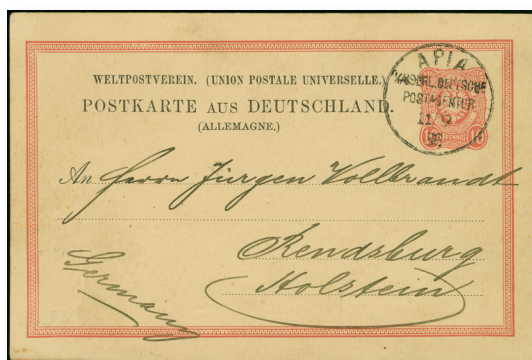 WELTPOSTVEREIN. (UNION POSTALE UNIVERSELLE.)
POSTKARTE AUS DEUTSCHLAND.
(ALLEMAGNE.)
APIA
KAISERL. DEUTSCHE
POSTAGENTUR
11/9
An Herrn Jürgen Vollbrandt
Rendsburg
Holstein
Germany